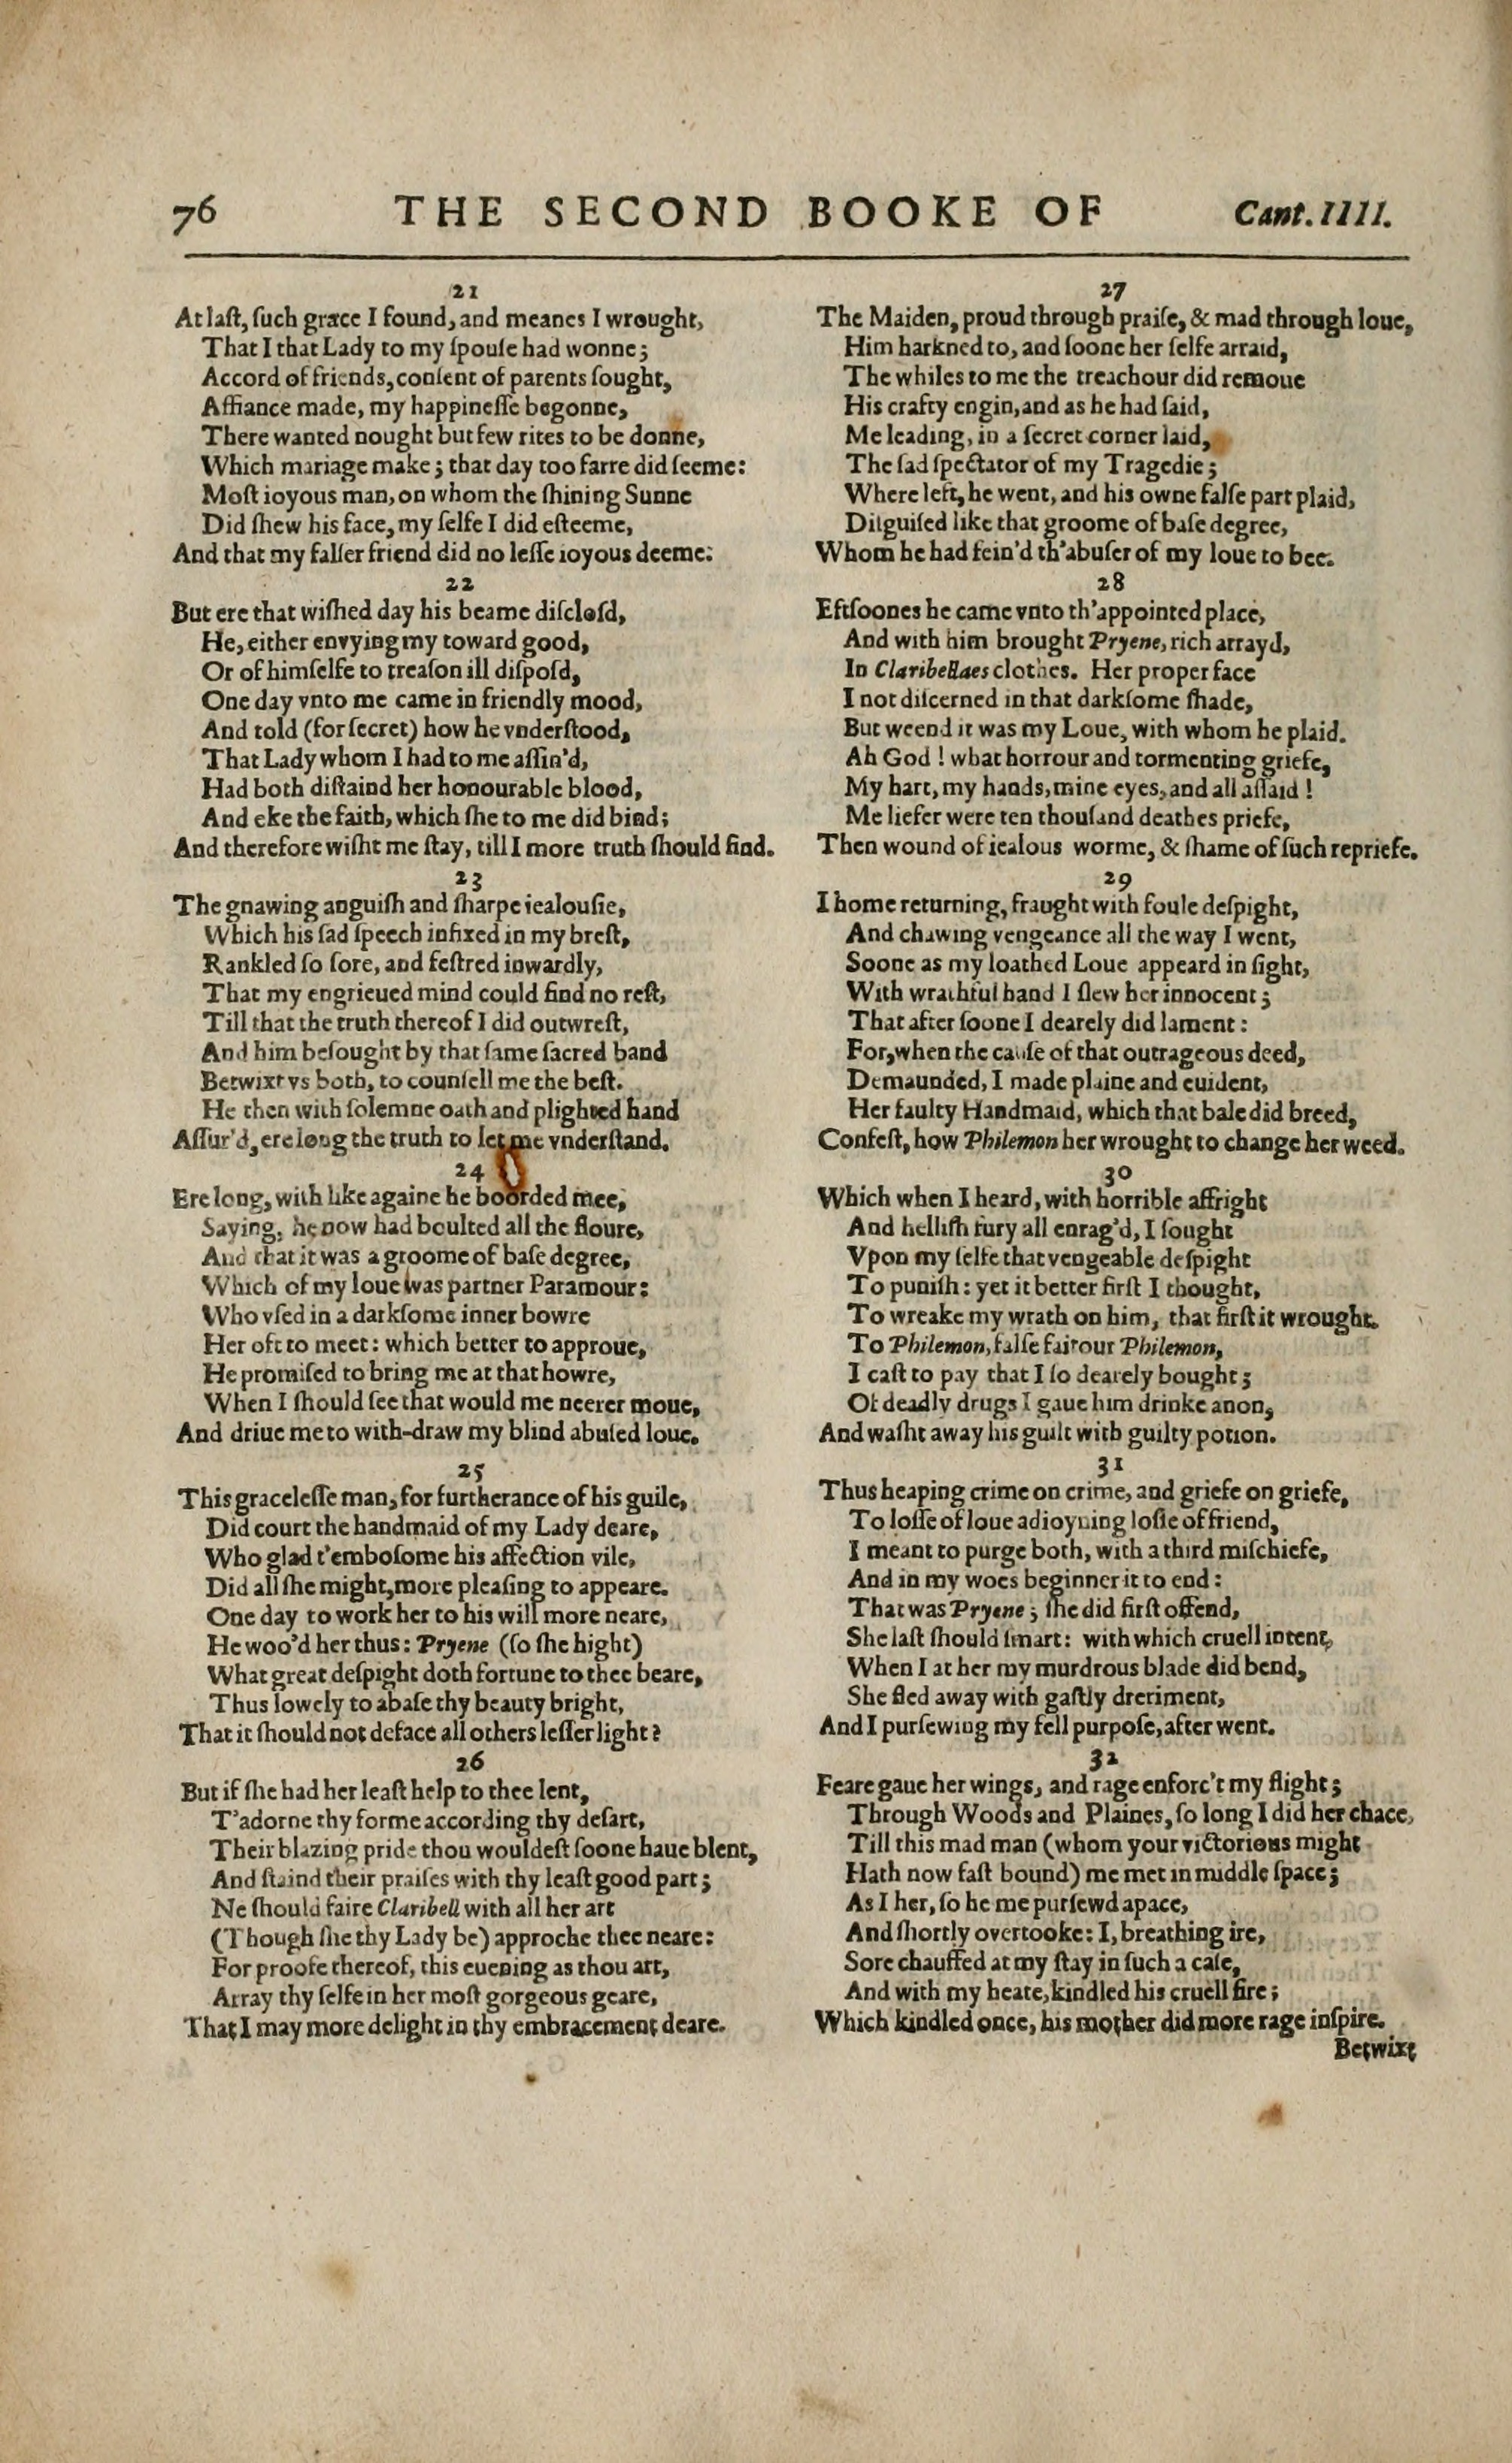 76 THE SECOND BOOKE OF Cant. IIII.
21
At laſt, ſuch grace I found, and meanes I wrought,
That I that Lady to my ſpouſe had wonne;
Accord of friends, conſent of parents ſought,
Affiance made, my happineſſe begonne,
There wanted nought but few rites to be donne,
Which mariage make; that day too farre did ſeeme:
Moſt ioyous man, on whom the ſhining Sunne
Did ſhew his face, my ſelfe I did eſteeme,
And that my falſer friend did no leſſe ioyous deeme:
22
But ere that wiſhed day his beame diſcloſd,
He, either envying my toward good,
Or of himſelfe to treaſon ill diſpoſd,
One day vnto me came in friendly mood,
And told (for ſecret) how he vnderſtood,
That Lady whom I had to me aſſin'd,
Had both diſtaind her honourable blood,
And eke the faith, which ſhe to me did bind;
And therefore wiſht me ſtay, till I more truth ſhould find.
23
The gnawing anguiſh and ſharpe iealouſie,
Which his ſad ſpeech infixed in my breſt,
Rankled ſo ſore, and feſtred inwardly,
That my engrieued mind could find no reſt,
Till that the truth thereof I did outwreſt,
And him beſought by that ſame ſacred band
Betwixt vs both, to counſell me the beſt.
He then with ſolemne oath and plighted hand
Aſſur'd, ere long the truth to let me vnderſtand.
24
Ere long, with like againe he boorded mee,
Saying, he now had boulted all the floure,
And that it was a groome of baſe degree,
Which of my loue was partner Paramour:
Who vſed in a darkſome inner bowre
Her oft to meet: which better to approue,
He promiſed to bring me at that howre,
When I ſhould ſee that would me neerer moue,
And driue me to with-draw my blind abuſed loue.
25
This graceleſſe man, for furtherance of his guile,
Did court the handmaid of my Lady deare,
Who glad t'emboſome his affection vile,
Did all ſhe might, more pleaſing to appeare.
One day to work her to his will more neare,
He woo'd her thus: Pryene (ſo ſhe hight)
What great deſpight doth fortune to thee beare,
Thus lowely to abaſe thy beauty bright,
That it ſhould not deface all others leſſer light?
26
But if ſhe had her leaſt help to thee lent,
T'adorne thy forme according thy deſart,
Their blazing pride thou wouldeſt ſoone haue blent,
And ſtaind their praiſes with thy leaſt good part;
Ne ſhould faire Claribell with all her art
(Though ſhe thy Lady be) approche thee neare:
For proofe thereof, this euening as thou art,
Array thy ſelfe in her moſt gorgeous geare,
That I may more delight in thy embracement deare.
27
The Maiden, proud through praiſe, & mad through loue,
Him harkned to, and ſoone her ſelfe arraid,
The whiles to me the treachour did remoue
His crafty engin, and as he had ſaid,
Me leading, in a ſecret corner laid,
The ſad ſpectator of my Tragedie;
Where left, he went, and his owne falſe part plaid,
Diſguiſed like that groome of baſe degree,
Whom he had fein'd th'abuſer of my loue to bee.
28
Eftſoones he came vnto th'appointed place,
And with him brought Pryene, rich arrayd,
In Claribellaes clothes. Her proper face
I not diſcerned in that darkſome ſhade,
But weend it was my Loue, with whom he plaid.
Ah God! what horrour and tormenting griefe,
My hart, my hands, mine eyes, and all aſſaid!
Me liefer were ten thouſand deathes priefe,
Then wound of iealous worme, & ſhame of ſuch repriefe.
29
I home returning, fraught with foule deſpight,
And chawing vengeance all the way I went,
Soone as my loathed Loue appeard in ſight,
With wrathful hand I ſlew her innocent;
That after ſoone I dearely did lament:
For, when the cauſe of that outrageous deed,
Demaunded, I made plaine and euident,
Her faulty Handmaid, which that bale did breed,
Confeſt, how Philemon her wrought to change her weed.
30
Which when I heard, with horrible affright
And helliſh fury all enrag'd, I ſought
Vpon my ſelfe that vengeable deſpight
To puniſh: yet it better firſt I thought,
To wreake my wrath on him, that firſt it wrought.
To Philemon, falſe faitour Philemon,
I caſt to pay that I ſo dearely bought;
Of deadly drugs I gaue him drinke anon,
And waſht away his guilt with guilty potion.
31
Thus heaping crime on crime, and griefe on griefe,
To loſſe of loue adioyning loſſe of friend,
I meant to purge both, with a third miſchiefe,
And in my woes beginner it to end:
That was Pryene; ſhe did firſt offend,
She laſt ſhould ſmart: with which cruell intent,
When I at her my murdrous blade did bend,
She fled away with gaſtly dreriment,
And I purſewing my fell purpoſe, after went.
32
Feare gaue her wings, and rage enforc't my flight;
Through Woods and Plaines, ſo long I did her chace,
Till this mad man (whom your victorious might
Hath now faſt bound) me met in middle ſpace;
As I her, ſo he me purſewd apace,
And ſhortly overtooke: I, breathing ire,
Sore chauffed at my ſtay in ſuch a caſe,
And with my heate, kindled his cruell fire;
Which kindled once, his mother did more rage inſpire.
Betwixt